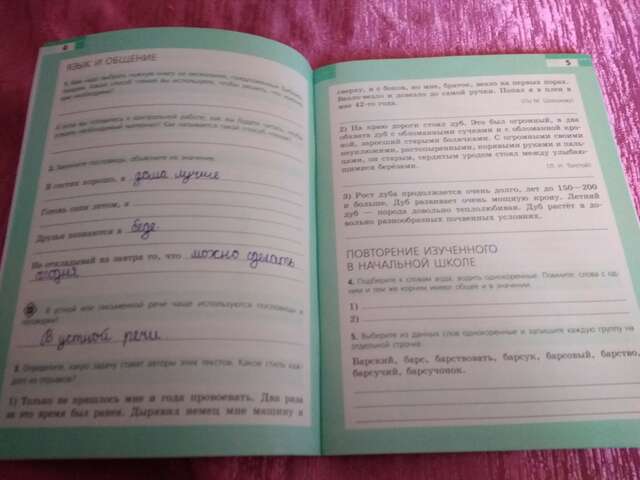 4
ЯЗЫК И ОБЩЕНИЕ
1. Вам надо выбрать нужную книгу из нескольких, предложенных библио-
текарем. Какой способ чтения вы используете, чтобы решить, что нужно
вам необходимо?
А если вы готовитесь к контрольной работе, как вы будете читать, чтобы
узнать необходимый материал? Как называется такой способ чтения?
2. Закончите пословицы, объясните их значение.
В гостях хорошо, а дома лучше
Готовь сани летом, а
Друзья познаются в беде
Не откладывай на завтра то, что можно сделать
сегодня
В устной или письменной речи чаще используются пословицы и
поговорки?
В устной речи
3. Определите, какую задачу ставят авторы этих текстов. Какой стиль каж-
дого из отрывков?
1) Только не пришлось мне и года провоевать. Два раза
за это время был ранен. Дырявил немец мне машину и
5
сверху, и с боков, но мне, браток, везло на первых порах.
Везло-везло и довезло до самой ручки. Попал я в плен в
мае 42-го года.
(По М. Шолохову)
2) На краю дороги стоял дуб. Это был огромный, в два
обхвата дуб с обломанными сучками и с обломанной ко-
рой, заросшей старыми болячками. С огромными своими
неуклюжими, растопыренными, корявыми руками и паль-
цами, он старым, сердитым уродом стоял между улыбаю-
щимися берёзами.
(Л. Н. Толстой)
3) Рост дуба продолжается очень долго, лет до 150—200
и больше. Дуб развивает очень мощную крону. Летний
дуб — порода довольно теплолюбивая. Дуб растёт в до-
вольно разнообразных почвенных условиях.
ПОВТОРЕНИЕ ИЗУЧЕННОГО
В НАЧАЛЬНОЙ ШКОЛЕ
4. Подберите к словам вода, водить однокоренные. Помните: слова с од-
ним и тем же корнем имеют общее и в значении.
1)
2)
5. Выберите из данных слов однокоренные и запишите каждую группу на
отдельной строчке.
Барский, барс, барствовать, барсук, барсовый, барство,
барсучий, барсучонок.